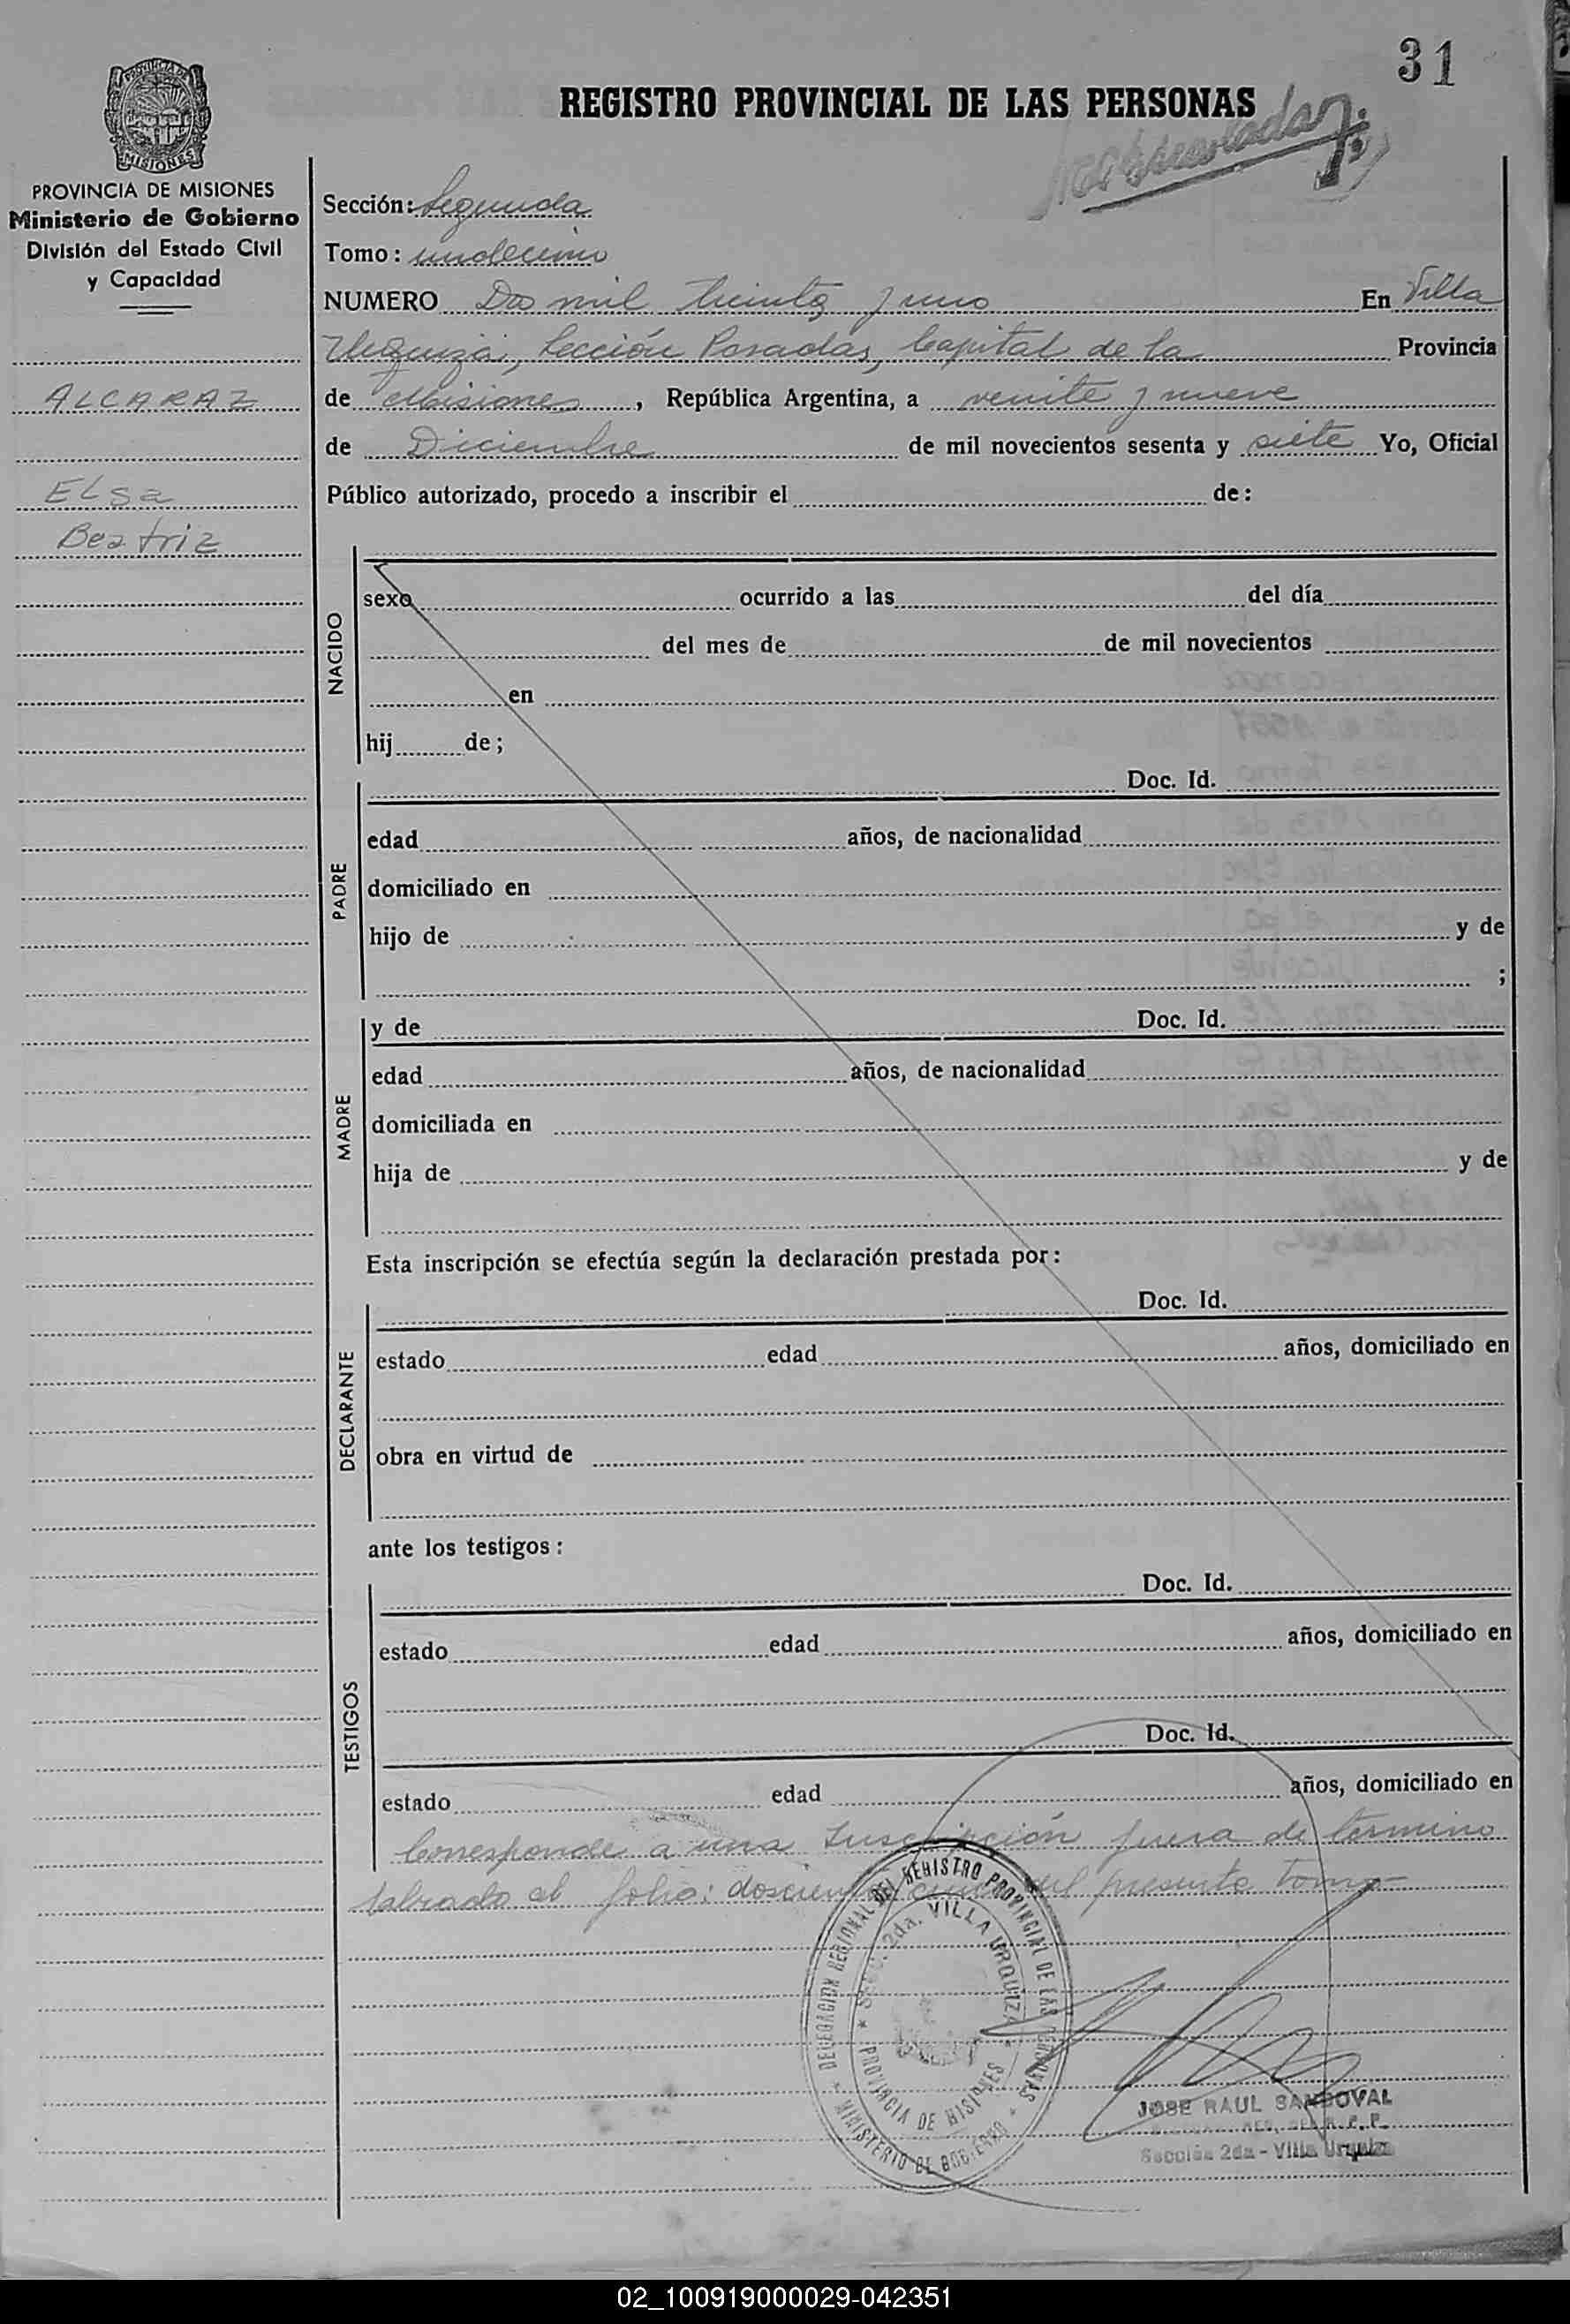 31
REGISTRO PROVINCIAL DE LAS PERSONAS
PROVINCIA DE MISIONES
Ministerio de Gobierno
División del Estado Civil
y Capacidad
ALCARAZ
Elsa
Beatriz
Sección: Segunda
Tomo: undecimo
NUMERO Dos mil treinta y uno En Villa
Urquiza, Sección Posadas, Capital de la Provincia
de Misiones, República Argentina, a veinte y nueve
de Diciembre de mil novecientos sesenta y siete Yo, Oficial
Público autorizado, procedo a inscribir el de:
NACIDO
sexo ocurrido a las del día
del mes de de mil novecientos
en
hij de;
PADRE
Doc. Id.
edad años, de nacionalidad
domiciliado en
hijo de y de
;
MADRE
y de Doc. Id.
edad años, de nacionalidad
domiciliada en
hija de y de
Esta inscripción se efectúa según la declaración prestada por:
DECLARANTE
Doc. Id.
estado edad años, domiciliado en
obra en virtud de
ante los testigos:
TESTIGOS
Doc. Id.
estado edad años, domiciliado en
Doc. Id.
estado edad años, domiciliado en
Corresponde a una Inscripción fuera de termino
labrada al folio: del presente tomo
DELEGACION REGIONAL DEL REGISTRO PROVINCIAL DE LAS PERSONAS
MINISTERIO DE GOBIERNO
2da. VILLA URQUIZA
PROVINCIA DE MISIONES
JOSE RAUL SANDOVAL
Sección 2da - Villa Urquiza
02_100919000029-042351